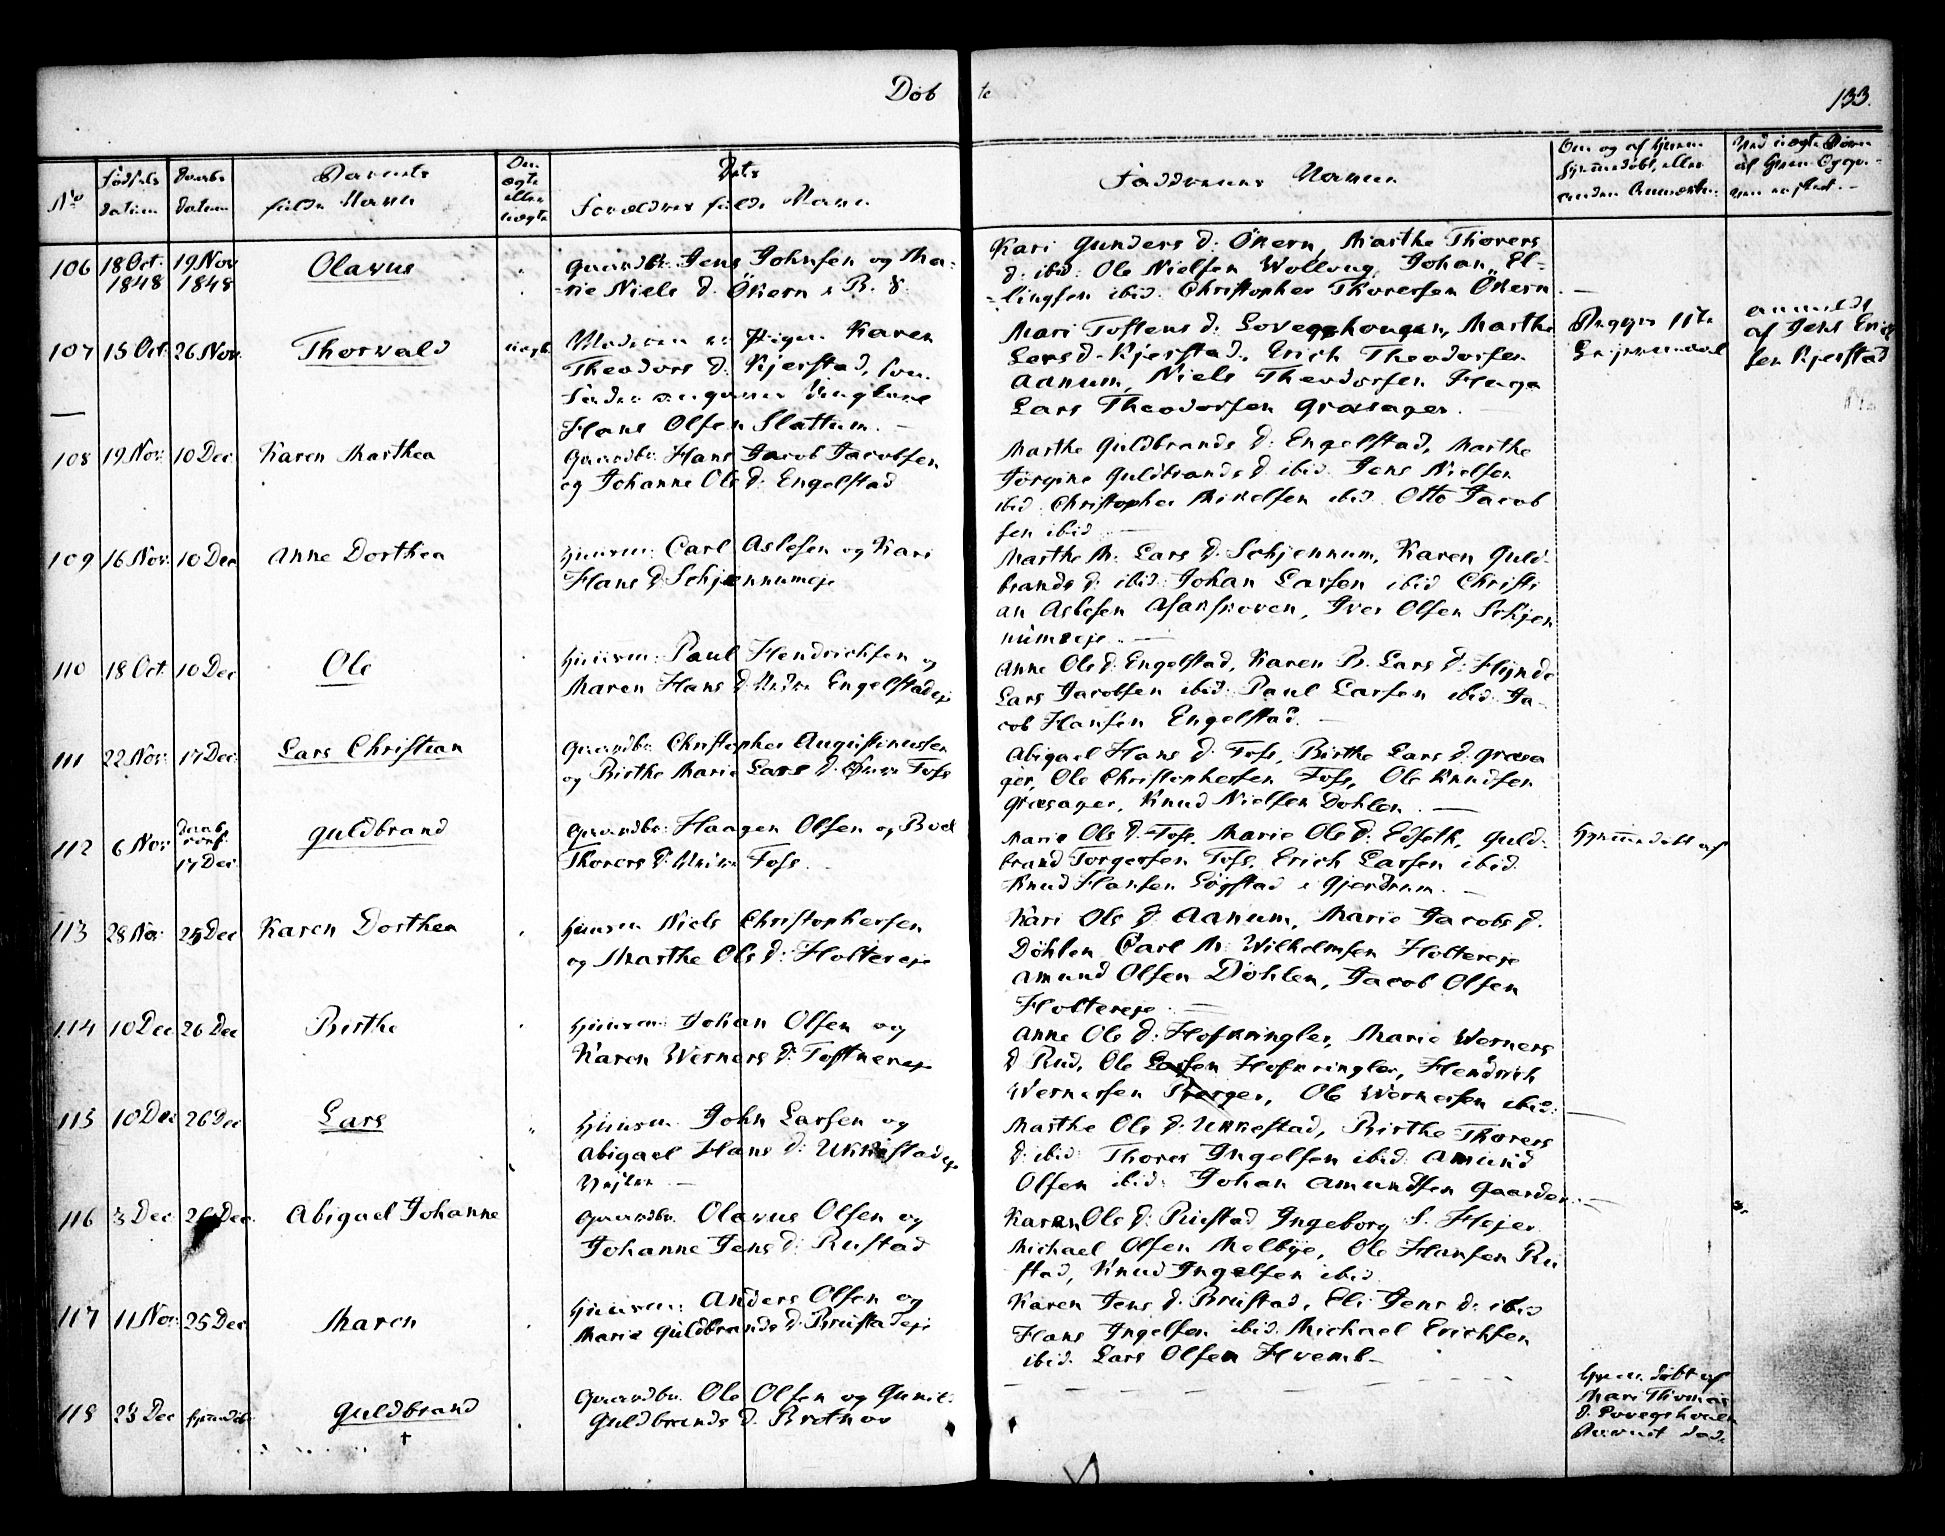 Døbte
133.
No
Fødsels datum
Daabs datum
Barnets fulde Navn
Om ægte eller uægte
Dets Forældres fulde Navn
Faddernes Navne
106 18 Oct. 1848 19 Nov 1848 Olavus
Gaardbr. Jens Johnsen og Ma-
rie Niels d. Økern i B. S.
Kari Gunders d: Økern, Marthe Thorers
d: ibid: Ole Nielsen Wollaug, Johan El-
lingsen ibid. Christopher Thoresen Økern
107 15 Oct. 26 Nov. Thorvald uægte
Moderen er Pigen Karen
Theodors d. Kjerstad, som
Fader angiver Ungkarl
Hans Olsen Slattum.
Mari Toftens d: Lovegshougen, Marthe
Lars d. Kjerstad, Erich Theodorsen
Aanum, Niels Theodorsen Haga
Lars Theodorsen Græsager.
anmeldt
af Jens Erich
sen Kjerstad
108 19 Nov. 10 Dec Karen Marthea
Gaardbr. Hans Jacob Jacobsen
og Johanne Ols d: Engelstad
Marthe Guldbrands d: Engelstad, Marthe
Jørgine Guldbrands d. ibid. Jens Nielsen
ibid. Christopher Mikelsen ibid. Otto Jacob
sen ibid
109 16 Nov. 10 Dec Anne Dorthea
Huusm: Carl Aslesen og Kari
Hans d: Schjennumeje
Marthe M: Lars d. Schjennum, Karen Guld-
brands d: ibid. Johan Larsen ibid Christi
an Aslesen Asakskoven, Iver Olsen Schjen
numeje.
110 18 Oct 10 Dec Ole
Huusm: Paul Hendrichsen og
Maren Hans d. Nedre Engelstadeje
Anne Ols d. Engelstad, Karen B. Lars d: Hynde
Lars Jacobsen ibid: Paul Larsen ibid. Ja-
cob Hansen Engelstad.
111 22 Nov. 17 Dec. Lars Christian
Gaardbr. Christopher Augustinussen
og Birthe Marie Lars d. Foss
Abigael Hans d: Foss, Birthe Lars d. Græsa
ger, Ole Christophersen Foss, Ole Knudsen
Græsager, Knud Nielsen Dohlen.
112 6 Nov 17 Dec. Guldbrand
Gaardbr: Haagen Olsen og Boel
Thorers d. Foss
Marie Ols d. Foss, Marie Ols d: Edseth, Guld-
brand Torgersen Foss, Erich Larsen ibid.
Knud Hansen Løgstad i Gjerdrum.
Hjemmedøbt af
113 28 Nov 25 Dec Karen Dorthea
Huusm Niels Christophersen
og Marthe Ols d: Holtereje
Kari Ols d. Aanum, Marie Jacobs d.
Döhlen Carl M. Wilhelmsen Holtereje
Amund Olsen Döhlen, Jacob Olsen
Holtereje.
114 10 Dec 26 Dec Birthe
Huusm: Johan Olsen og
Karen Werners d: Toftnereje
Anne Ols d: Hofkringler, Marie Werners
d Rud, Ole Larsen Hofkringler, Hendrich
Wernersen Berger, Ole Wernersen ibid:
115 10 Dec 26 Dec Lars
Huusm: John Larsen og
Abigael Hans d: Ukkestadeje
Nejten
Marthe Ols d. Ukkestad, Birthe Thorers
d. ibid: Thorer Ingelsen ibid: Amund
Olsen ibid: Johan Amundsen Gaarder.
116 3 Dec 26 Dec. Abigael Johanne
Gaardbr. Olavus Olsen og
Johanne Jens d: Rustad
Karen Ols d: Rustad Ingeborg S. Hejer
Michael Olsen Melbye, Ole Hansen Ru
stad, Knud Ingelsen ibid
117 11 Nov. 25 Dec Maren
Huusm: Anders Olsen og
Marie Guldbrands d. Brustadeje
Karen Jens d. Brustad, Eli Jens d: ibid
Hans Ingelsen ibid. Michael Erichsen
ibid. Lars Olsen Hvemb
118 23 Dec Guldbrand
†
Gaardbr. Ole Olsen og Gunil
Guldbrands d. Brotnov
Hjem. døbt af
Mari Thomas
d.
Barnet død.